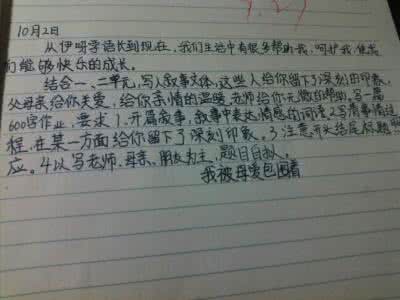 10月2日
从伊呀学语长到现在,我们生活中有很多帮助我,呵护我,使我
们能够快乐的成长。
结合一、二单元,写人叙事文体,这些人给你留下了深刻的印象。
父母亲给你关爱,给你亲情的温暖,老师给你无微的帮助,写一篇
600字作业,要求1.开篇叙事,叙事中表达情感的词语2.写清事情过
程,在某一方面给你留下了深刻印象。3.注意开头结尾标题
应。4.以写老师、母亲、朋友为主,题目自拟。
我被母爱包围着